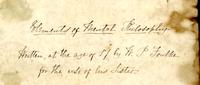 Elements of Mental Philosophy
Written, at the age of 17 by W. P. Foulke
for the use of his Sister